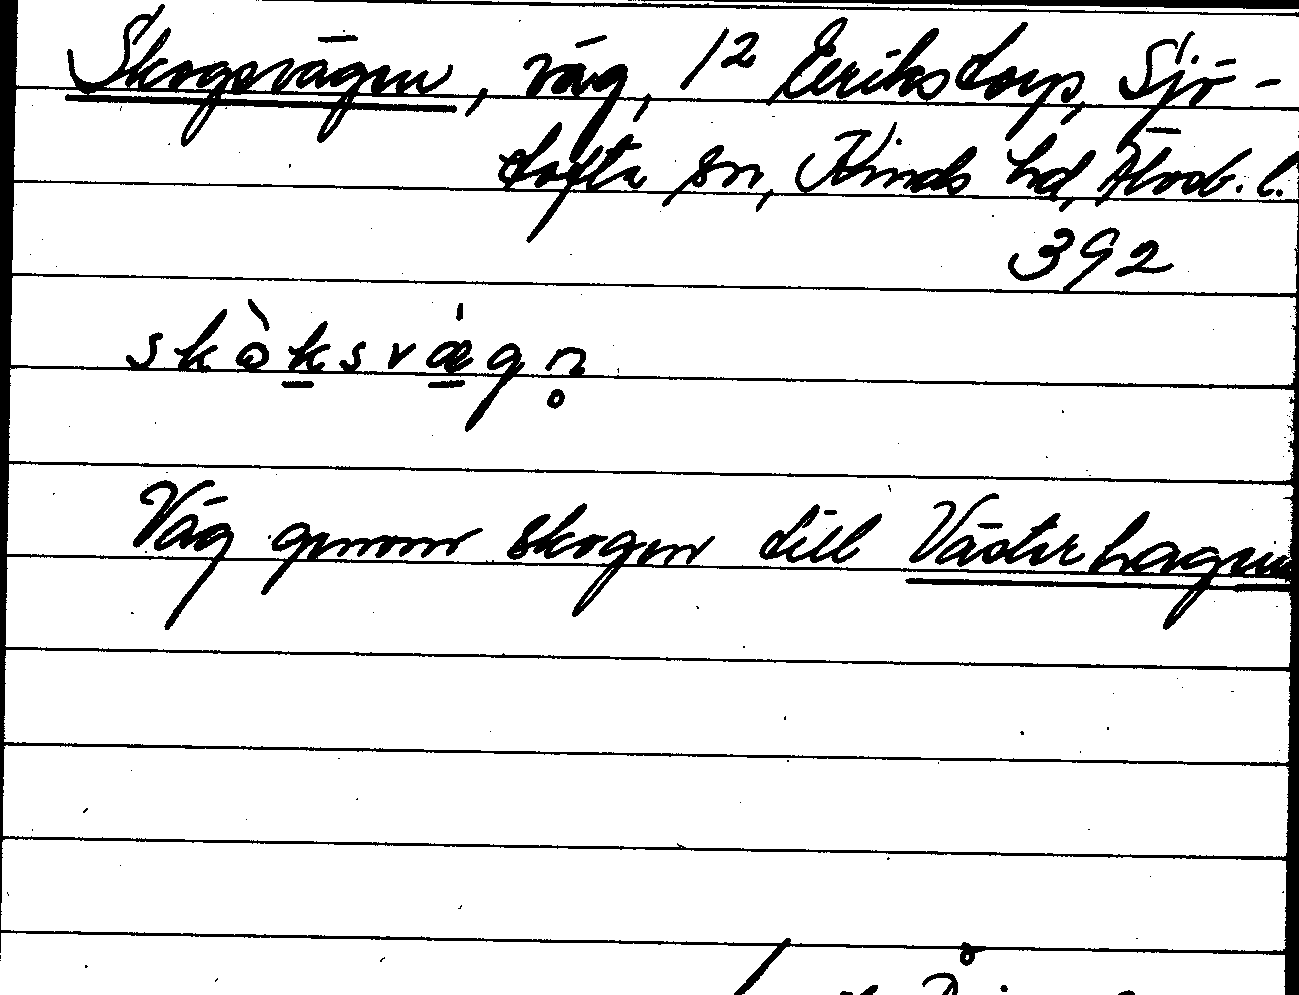 Skogsvägen, väg, 12 Erikstorp, Sjö-
tofta sn, Kinds hd, Älvsb. l.
392
skòksvǽgn̥
Väg genom skogen till Västerhagen